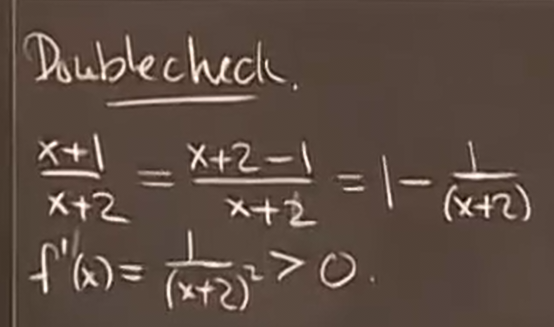 Doublecheck.
x+1/x+2 = x+2-1/x+2 = 1 - 1/(x+2)
f'(x) = 1/(x+2)² > 0.